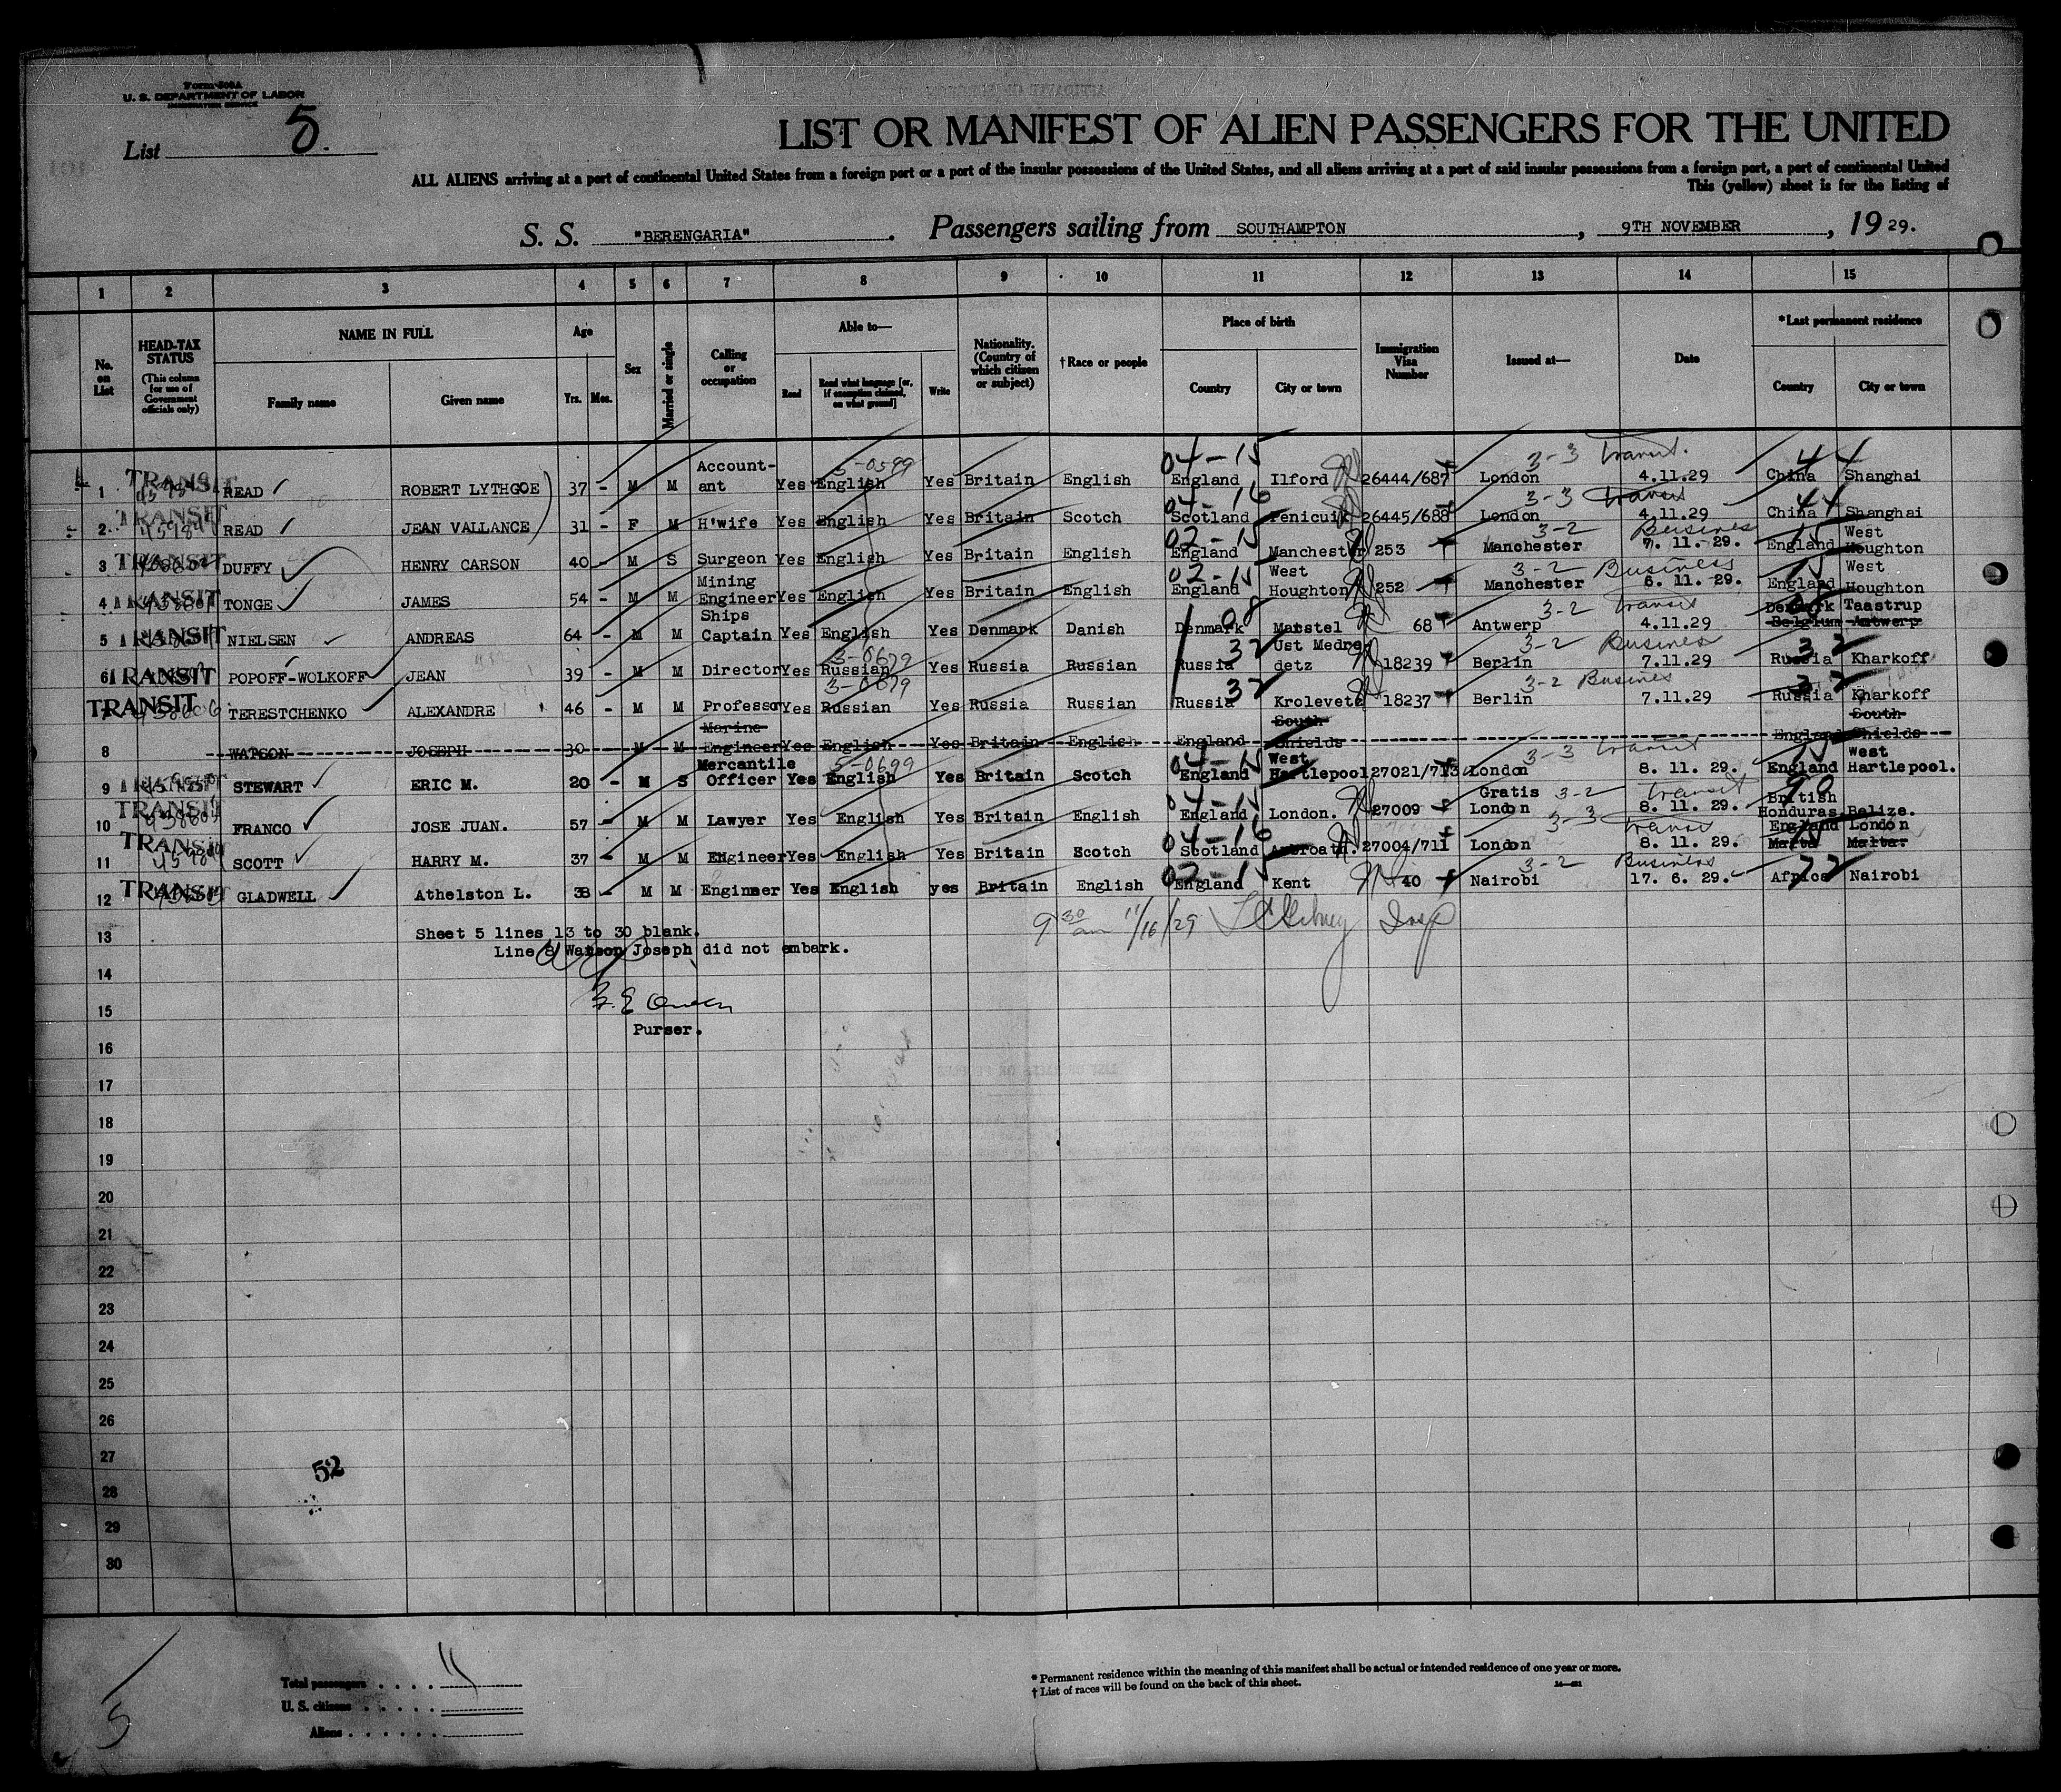 Form 500A
U. S. DEPARTMENT OF LABOR
IMMIGRATION SERVICE
List 5.
LIST OR MANIFEST OF ALIEN PASSENGERS FOR THE UNITED
ALL ALIENS arriving at a port of continental United States from a foreign port or a port of the insular possessions of the United States, and all aliens arriving at a port of said insular possessions from a foreign port, a port of continental United
This (yellow) sheet is for the listing of
S. S. "BERENGARIA". Passengers sailing from SOUTHAMPTON, 9TH NOVEMBER, 19 29.
1 2 3 4 5 6 7 8 9 10 11 12 13 14 15
No. on List
HEAD-TAX STATUS (This column for use of Government officials only)
NAME IN FULL Family name Given name
Age Yrs. Mos.
Sex
Married or single
Calling or occupation
Able to— Read Read what language [or, if exemption claimed, on what ground] Write
Nationality. (Country of which citizen or subject)
†Race or people
Place of birth Country City or town
Immigration Visa Number
Issued at—
Date
*Last permanent residence Country City or town
1 TRANSIT READ ROBERT LYTHGOE 37 - M M Account-ant Yes English 5-0599 Yes Britain English England 04-15 Ilford 26444/687 London 3-3 Transit. 4.11.29 China 44 Shanghai
2 TRANSIT READ JEAN VALLANCE 31 - F M H'wife Yes English Yes Britain Scotch Scotland 04-16 Penicuik 26445/688 London 3-3 Transit 4.11.29 China 44 Shanghai
3 TRANSIT DUFFY HENRY CARSON 40 - M S Surgeon Yes English Yes Britain English England 02-15 Manchester 253 Manchester 3-2 Business 7. 11. 29. England 15 West Houghton
4 TRANSIT TONGE JAMES 54 - M M Mining Engineer Yes English Yes Britain English England 02-15 West Houghton 252 Manchester 3-2 Business 6. 11. 29. England 15 West Houghton
5 TRANSIT NIELSEN ANDREAS 64 - M M Ships Captain Yes English Yes Denmark Danish Denmark 08 Marstel 68 Antwerp 3-2 Transit 4.11.29 Denmark Taastrup Belgium Antwerp
6 TRANSIT POPOFF-WOLKOFF JEAN 39 - M M Director Yes Russian 3-0679 Yes Russia Russian Russia 32 Ust Medve detz 18239 Berlin 3-2 Business 7.11.29 Russia 32 Kharkoff
7 TRANSIT TERESTCHENKO ALEXANDRE 46 - M M Professor Yes Russian 3-0879 Yes Russia Russian Russia 32 Krolevetz 18237 Berlin 3-2 Business 7.11.29 Russia 32 Kharkoff
8 WATSON JOSEPH 30 M M Marine Engineer Yes English Yes Britain English England South Shields England South Shields
9 TRANSIT STEWART ERIC M. 20 - M S Mercantile Officer Yes English 5-0699 Yes Britain Scotch England 04-15 West Hartlepool 27021/713 London 3-3 Transit 8. 11. 29. England 15 West Hartlepool.
10 TRANSIT FRANCO JOSE JUAN. 57 - M M Lawyer Yes English Yes Britain English England 04-15 London. 27009 Gratis London 3-2 Transit 8. 11. 29. British Honduras 90 Belize.
11 TRANSIT SCOTT HARRY M. 37 - M M Engineer Yes English Yes Britain Scotch Scotland 04-16 Arbroath. 27004/711 London 3-3 Transit 8. 11. 29. England London Malta Malta.
12 TRANSIT GLADWELL Athelston L. 38 - M M Engineer Yes English yes Britain English England 02-15 Kent 40 Nairobi 3-2 Business 17. 6. 29. Africa 72 Nairobi
13 Sheet 5 lines 13 to 30 blank. 9 30 am 11/16/29 Insp
Line 8 Watson Joseph did not embark.
14
15
Purser.
16
17
18
19
20
21
22
23
24
25
26
27
52
28
29
30
Total passengers 11
U. S. citizens
Aliens
* Permanent residence within the meaning of this manifest shall be actual or intended residence of one year or more.
† List of races will be found on the back of this sheet.
5